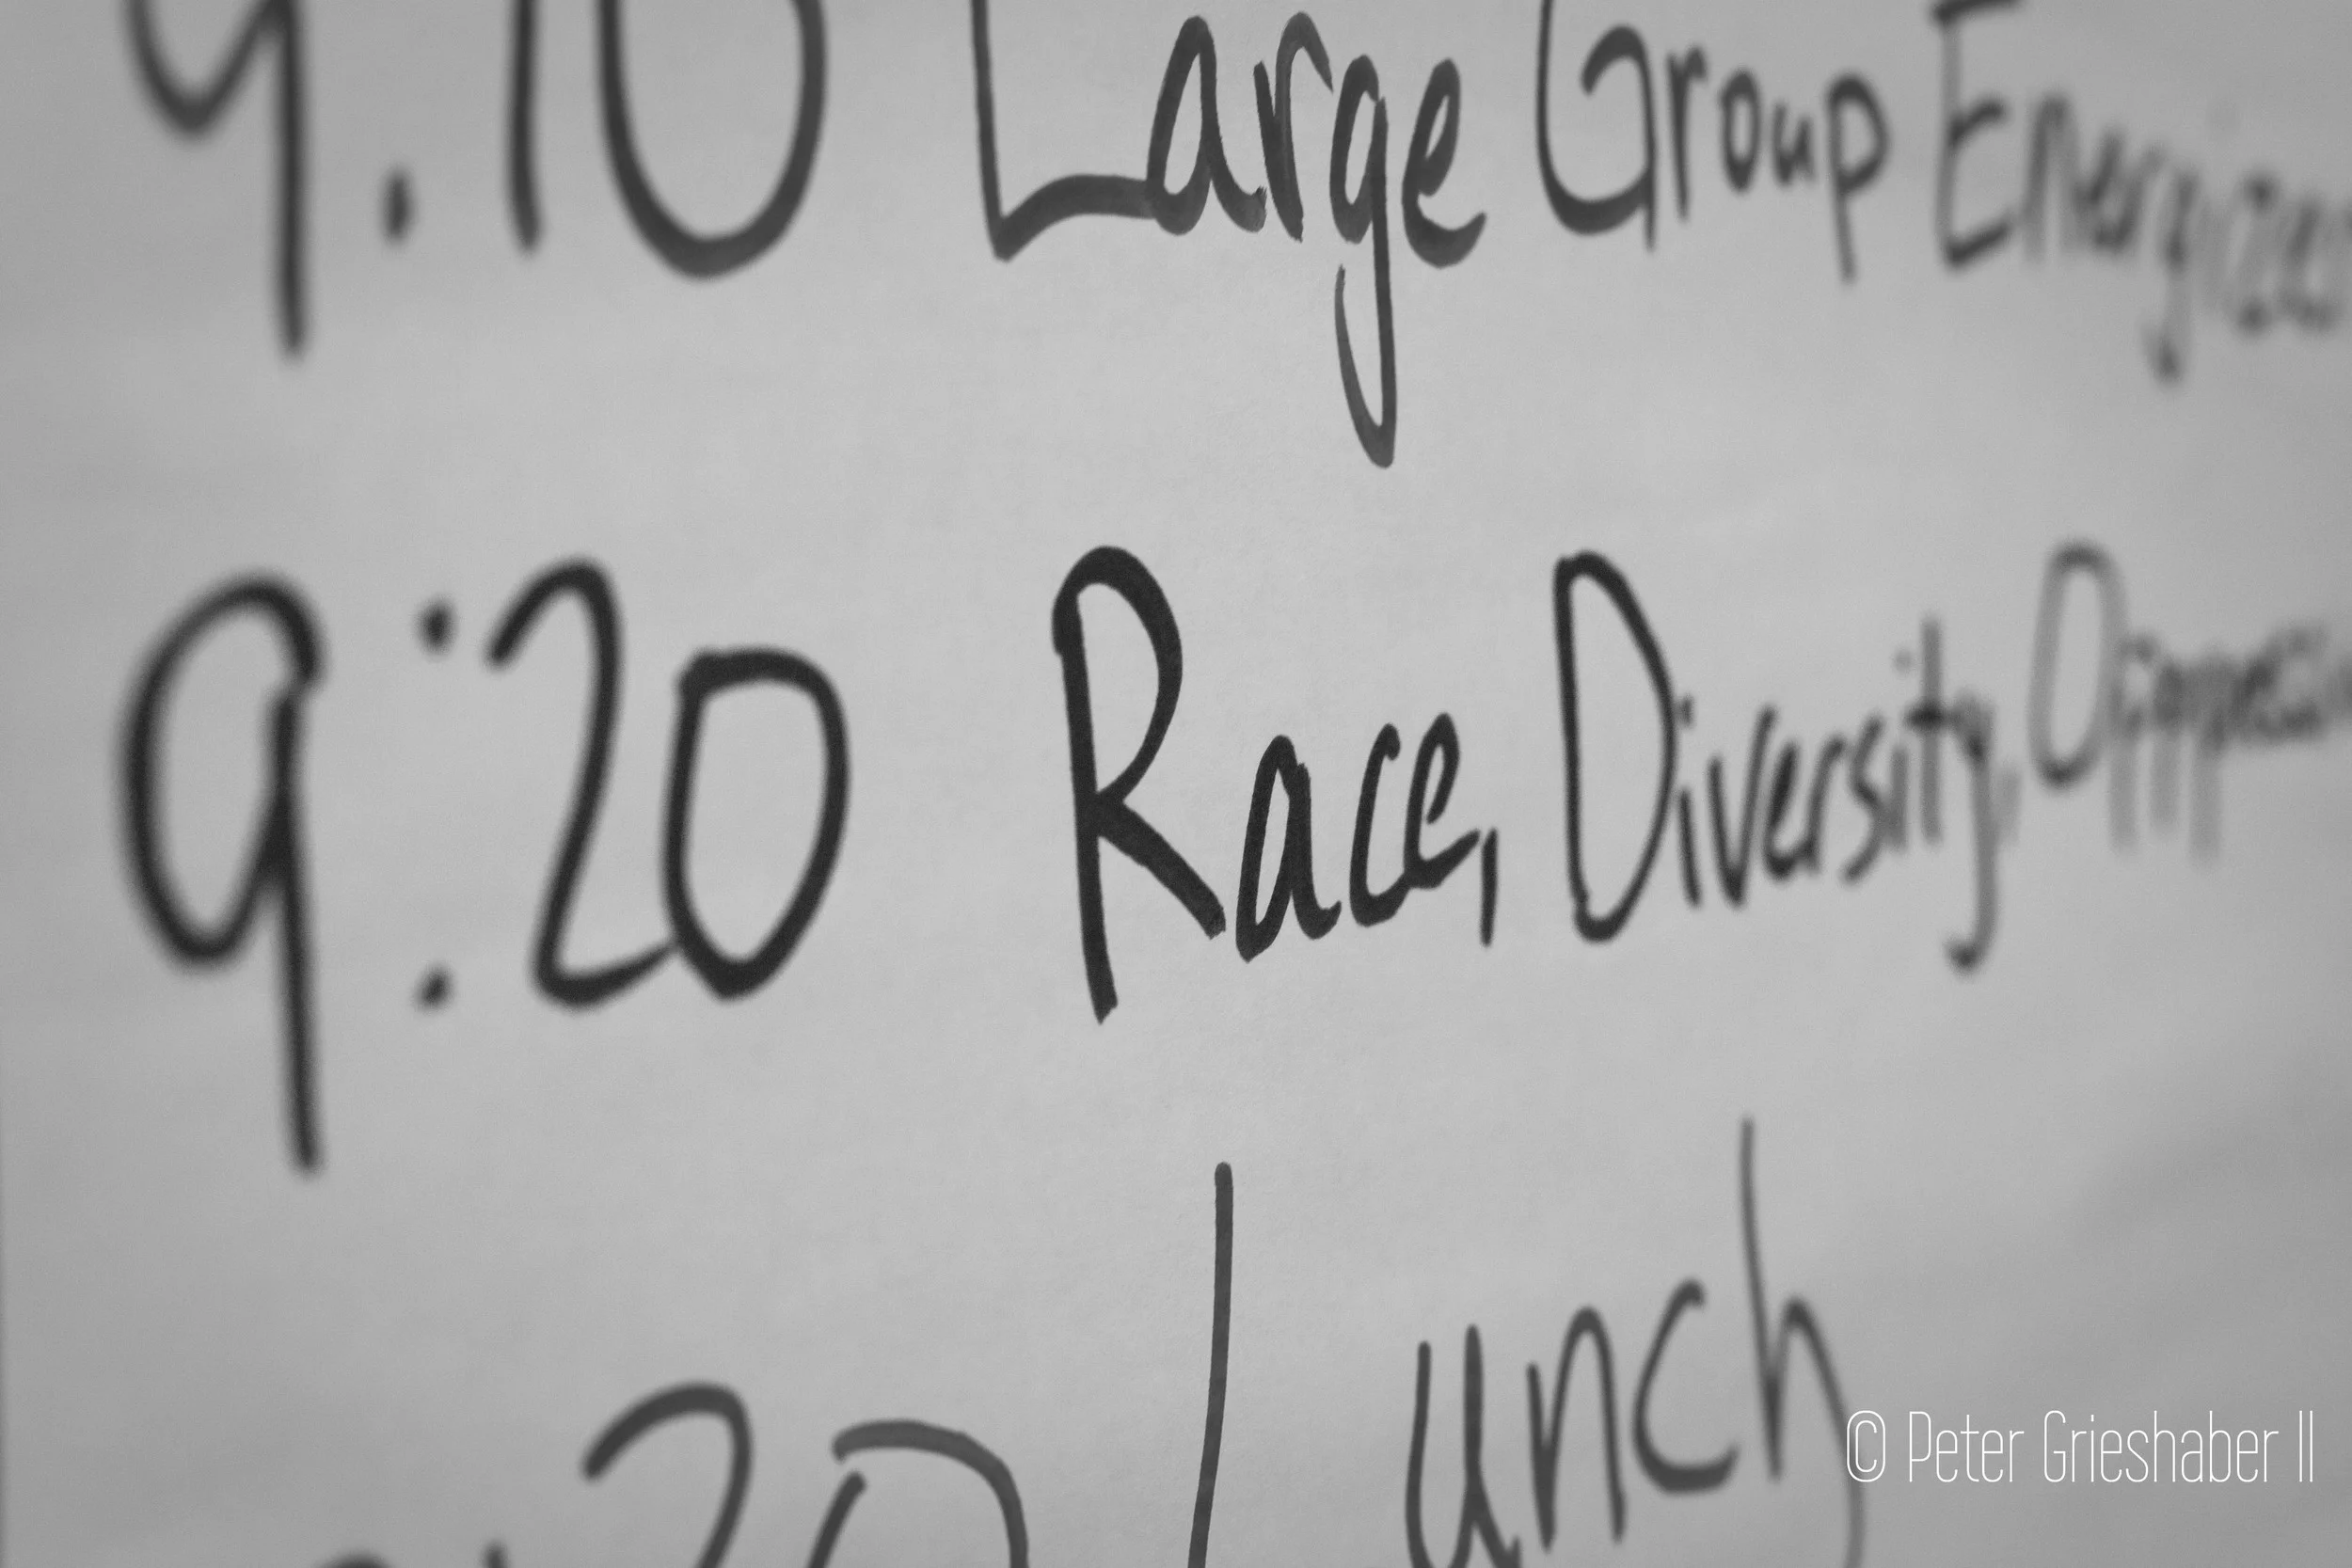 9:10 Large Group Energizer
9:20 Race, Diversity, Oppression
20 Lunch
© Peter Grieshaber II